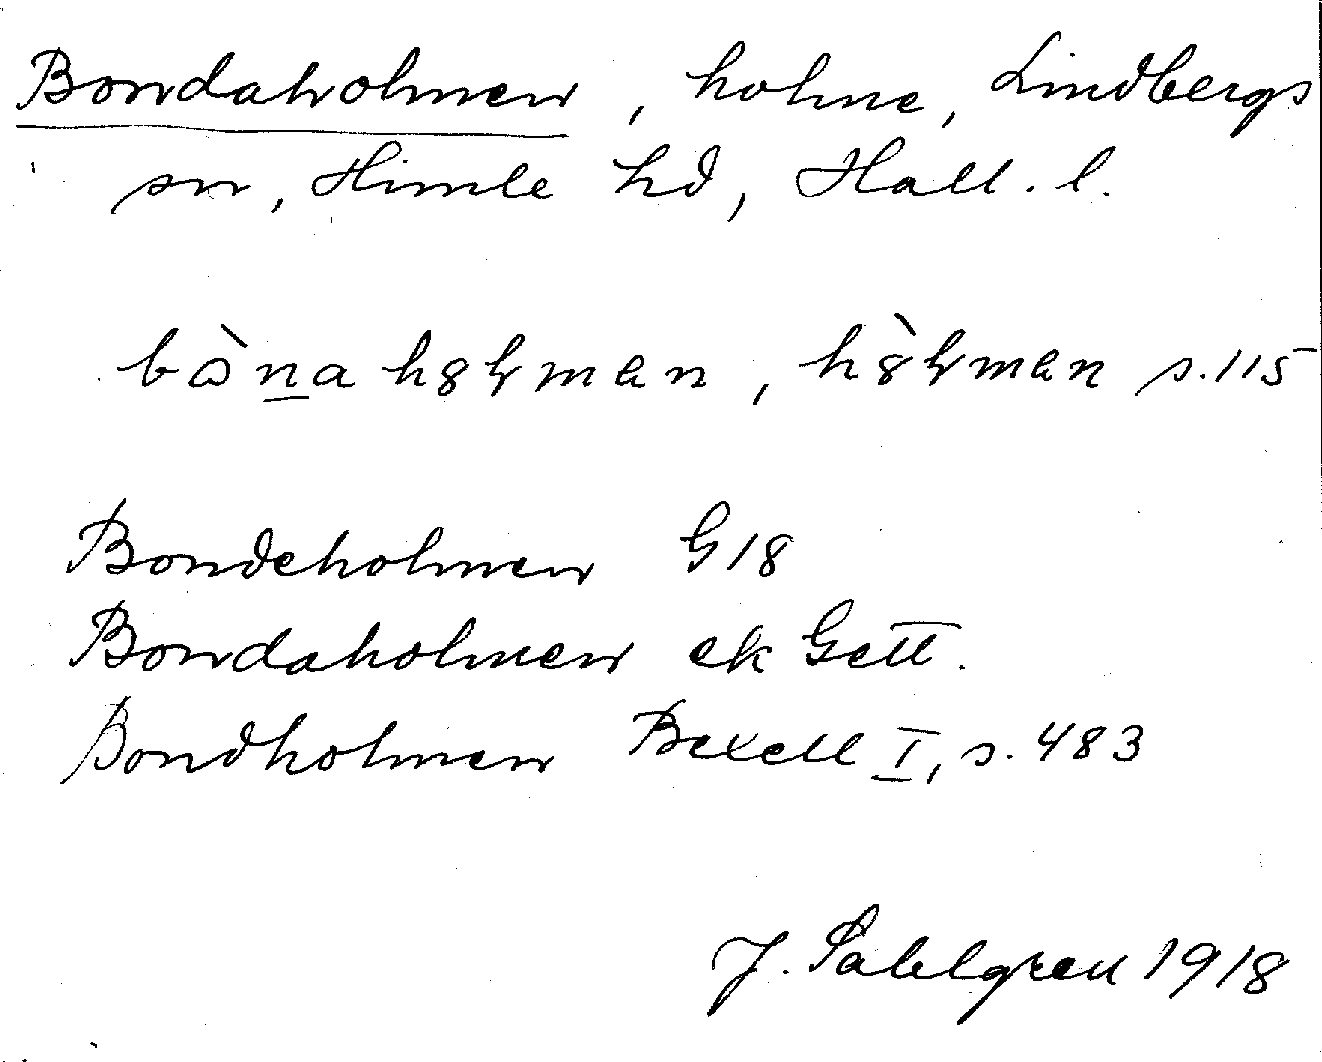 Bondaholmen, holme, Lindbergs
sn, Himle hd, Hall. l.
bònahȣɫmen, hȣ̀ɫmen s. 115
Bondeholmen G18
Bondaholmen ek Gett.
Bondholmen Bexell I, s. 483
J. Sahlgren 1918